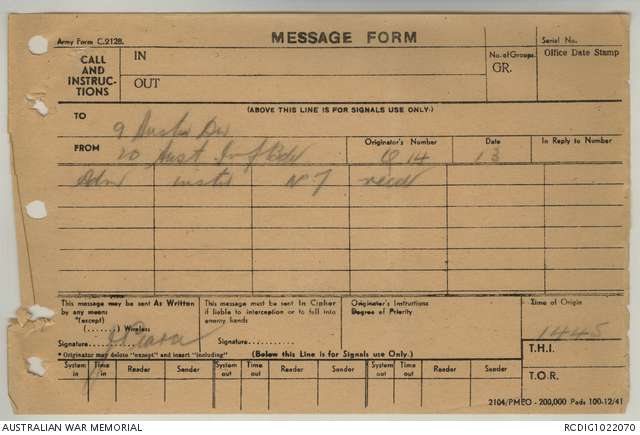 Army Form C.2128.
MESSAGE FORM
Serial No.
CALL AND INSTRUC-TIONS
IN
OUT
No. of Groups.
GR.
Office Date Stamp
(ABOVE THIS LINE IS FOR SIGNALS USE ONLY.)
TO 9 Aust Div
FROM 20 Aust Inf Bde
Originator's Number Q 14
Date 13
In Reply to Number
Adm instr No 7 recd
This message may be sent As Written by any means
*(except)
(.......) Wireless
Signature
This message must be sent In Cipher if liable to interception or to fall into enemy hands
Signature............
Originator's Instructions
Degree of Priority
Time of Origin
1445
* Originator may delete "except" and insert "including"
(Below this Line is for Signals use Only.)
T.H.I.
T.O.R.
System in Time in Reader Sender System out Time out Reader Sender System out Time out Reader Sender
2104/PMEO - 200,000 Pads 100-12/41
AUSTRALIAN WAR MEMORIAL
RCDIG1022070